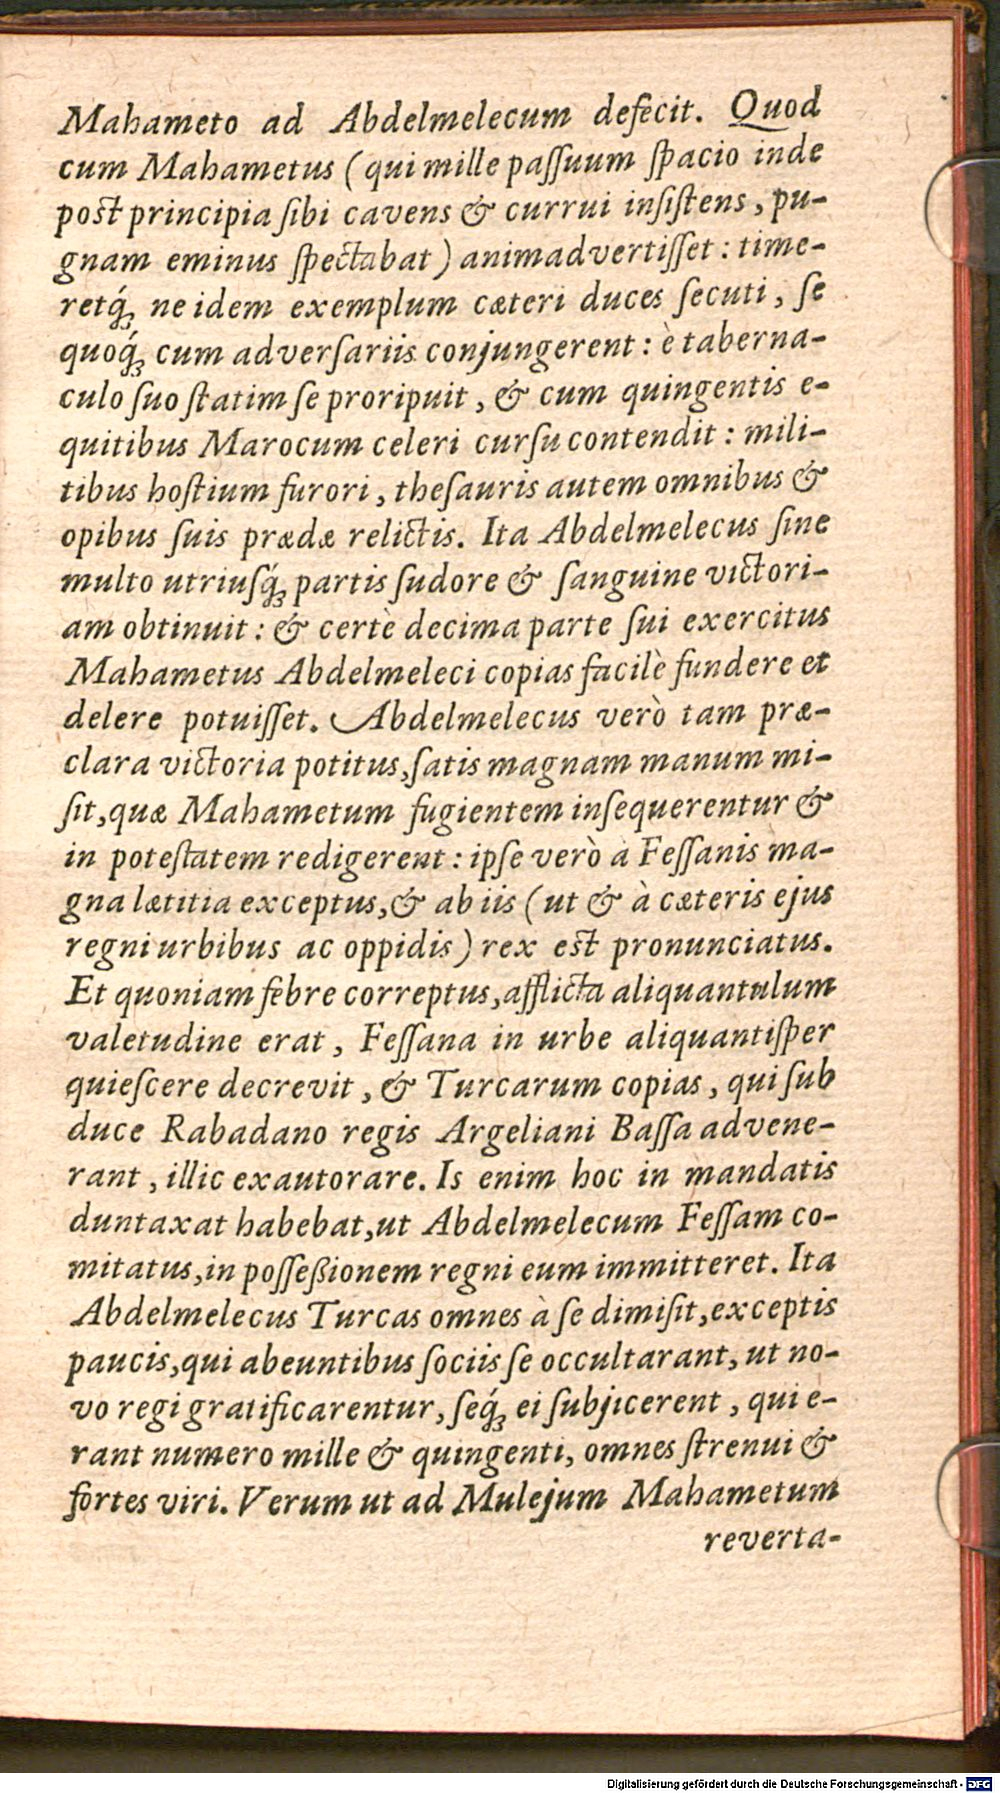 Mahameto ad Abdelmelecum defecit. Quod
cum Mahametus (qui mille paſſuum ſpacio inde
post principia ſibi cavens & currui inſiſtens, pu-
gnam eminus ſpectabat) animadvertiſſet: time-
retq́₃ ne idem exemplum cæteri duces ſecuti, ſe
quoq́₃ cum adverſariis conjungerent: è taberna-
culo ſuo ſtatim ſe proripuit, & cum quingentis e-
quitibus Marocum celeri curſu contendit: mili-
tibus hoſtium furori, theſauris autem omnibus &
opibus ſuis prædæ relictis. Ita Abdelmelecus ſine
multo utriuſq́₃ partis ſudore & ſanguine victori-
am obtinuit: & certè decima parte ſui exercitus
Mahametus Abdelmeleci copias facilè fundere et
delere potuiſſet. Abdelmelecus verò tam præ-
clara victoria potitus, ſatis magnam manum mi-
ſit, quæ Mahametum fugientem inſequerentur &
in poteſtatem redigerent: ipſe verò a Feſſanis ma-
gna lætitia exceptus, & ab iis (ut & à cæteris ejus
regni urbibus ac oppidis) rex est pronunciatus.
Et quoniam febre correptus, afflicta aliquantulum
valetudine erat, Feſſana in urbe aliquantiſper
quieſcere decrevit, & Turcarum copias, qui ſub
duce Rabadano regis Argeliani Baſſa advene-
rant, illic exautorare. Is enim hoc in mandatis
duntaxat habebat, ut Abdelmelecum Feſſam co-
mitatus, in poſſeßionem regni eum immitteret. Ita
Abdelmelecus Turcas omnes à ſe dimiſit, exceptis
paucis, qui abeuntibus ſociis ſe occultarant, ut no-
vo regi gratificarentur, ſeq́₃ ei ſubjicerent, qui e-
rant numero mille & quingenti, omnes ſtrenui &
fortes viri. Verum ut ad Mulejum Mahametum
reverta-
Digitalisierung gefördert durch die Deutsche Forschungsgemeinschaft - DFG